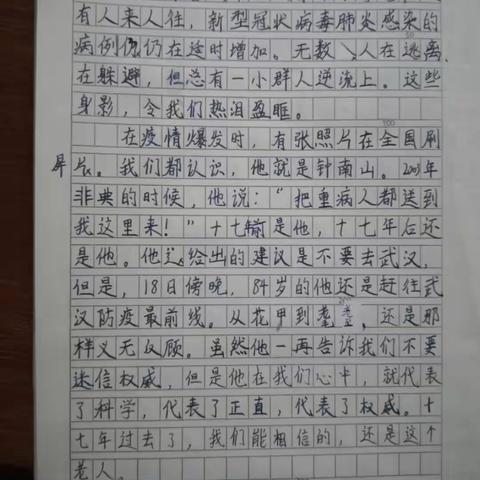 有人来人往，新型冠状病毒肺炎感染的
病例仍在这时增加。无数人在逃离、
在躲避，但总有一小群人逆流上。这些
身影，令我们热泪盈眶。
在疫情爆发时，有张照片在全国刷
屏
片。我们都认识，他就是钟南山。2003年
非典的时候，他说：“把重病人都送到
我这里来！”十七年前是他，十七年后还
是他。他给出的建议是不要去武汉，
但是，18日傍晚，84岁的他还是赶往武
汉防疫最前线。从花甲到耄耋，还是那
样义无反顾。虽然他一再告诉我们不要
迷信权威，但是他在我们心中，就代表
了科学，代表了正直，代表了权威。十
七年过去了，我们能相信的，还是这个
老人。